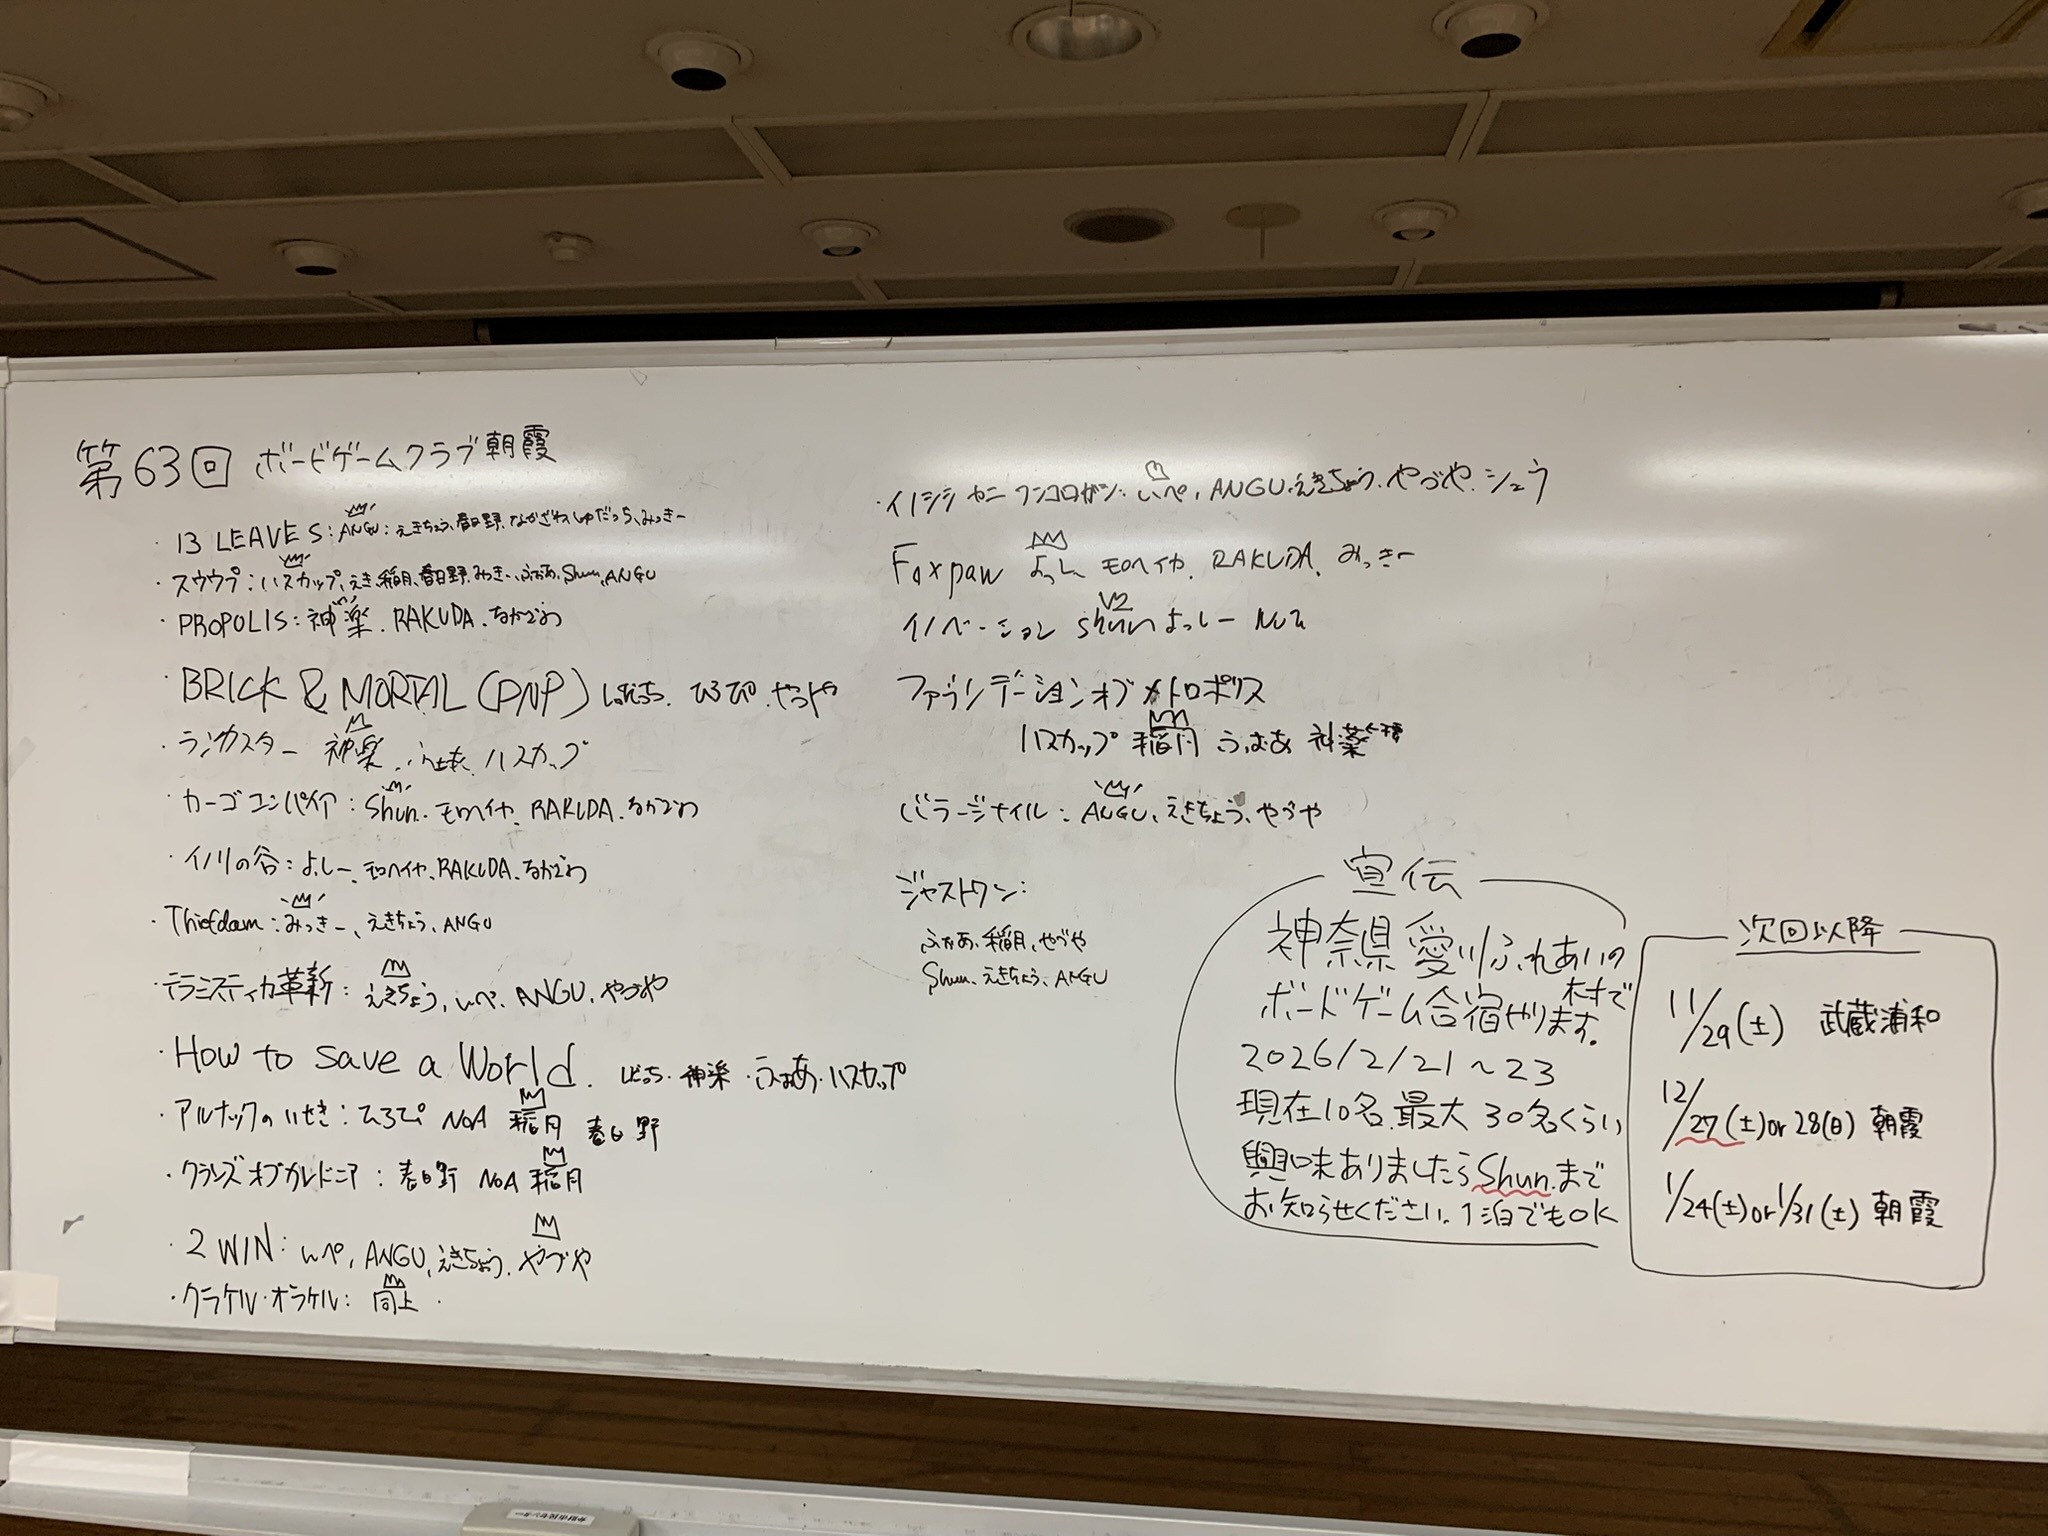 第63回 ボードゲームクラブ朝霞
・13 LEAVES:ANGU:えきちょう、春日野、なかざわ、しゅだっち、みっきー
・スウウプ:ハスカップ、えき、稲月、春日野、みっきー、ふぉあ、Shun、ANGU
・PROPOLIS:神楽、RAKUDA、なかざわ
・BRICK & MORTAL (PNP) しゅだっち、ひろぴ、やづや
・ランカスター 神楽、ふぉあ、ハスカップ
・カーゴエンパイア:Shun. モロヘイヤ、RAKUDA、なかざわ
・イノリの谷:よっしー、モロヘイヤ、RAKUDA、なかざわ
・Thiefdom:みっきー、えきちょう、ANGU
・テラミスティカ革新:えきちょう、いぺ、ANGU、やづや
・How to save a World. 神楽・ふぉあ・ハスカップ
・アルナックのいせき:ひろぴ NOA 稲月 春日野
・クランズオブカレドニア:春日野 NOA 稲月
・2WIN:いぺ, ANGU, えきちょう、やづや
・クラケル・オラケル:同上
・イノシシヤニ フンコロガシ:いぺ, ANGU, えきちょう、やづや、シュウ
Foxpaw よっしー モロヘイヤ、RAKUDA、みっきー
イノベーション V2 Shun よっしー
ファウンデーションオブメトロポリス
ハスカップ 稲月 ふぉあ 神楽
バラージナイル:ANGU、えきちょう、やづや
ジャストワン:
ふぉあ、稲月、やづや
Shun、えきちょう、ANGU
宣伝
神奈県 愛川ふれあいの
村で
ボードゲーム合宿やります。
2026/2/21〜23
現在10名、最大30名くらい
興味ありましたらShun.まで
お知らせください。1泊でもOK
次回以降
11/29(土) 武蔵浦和
12/27(土)or 28(日) 朝霞
1/24(土)or 1/31(土) 朝霞